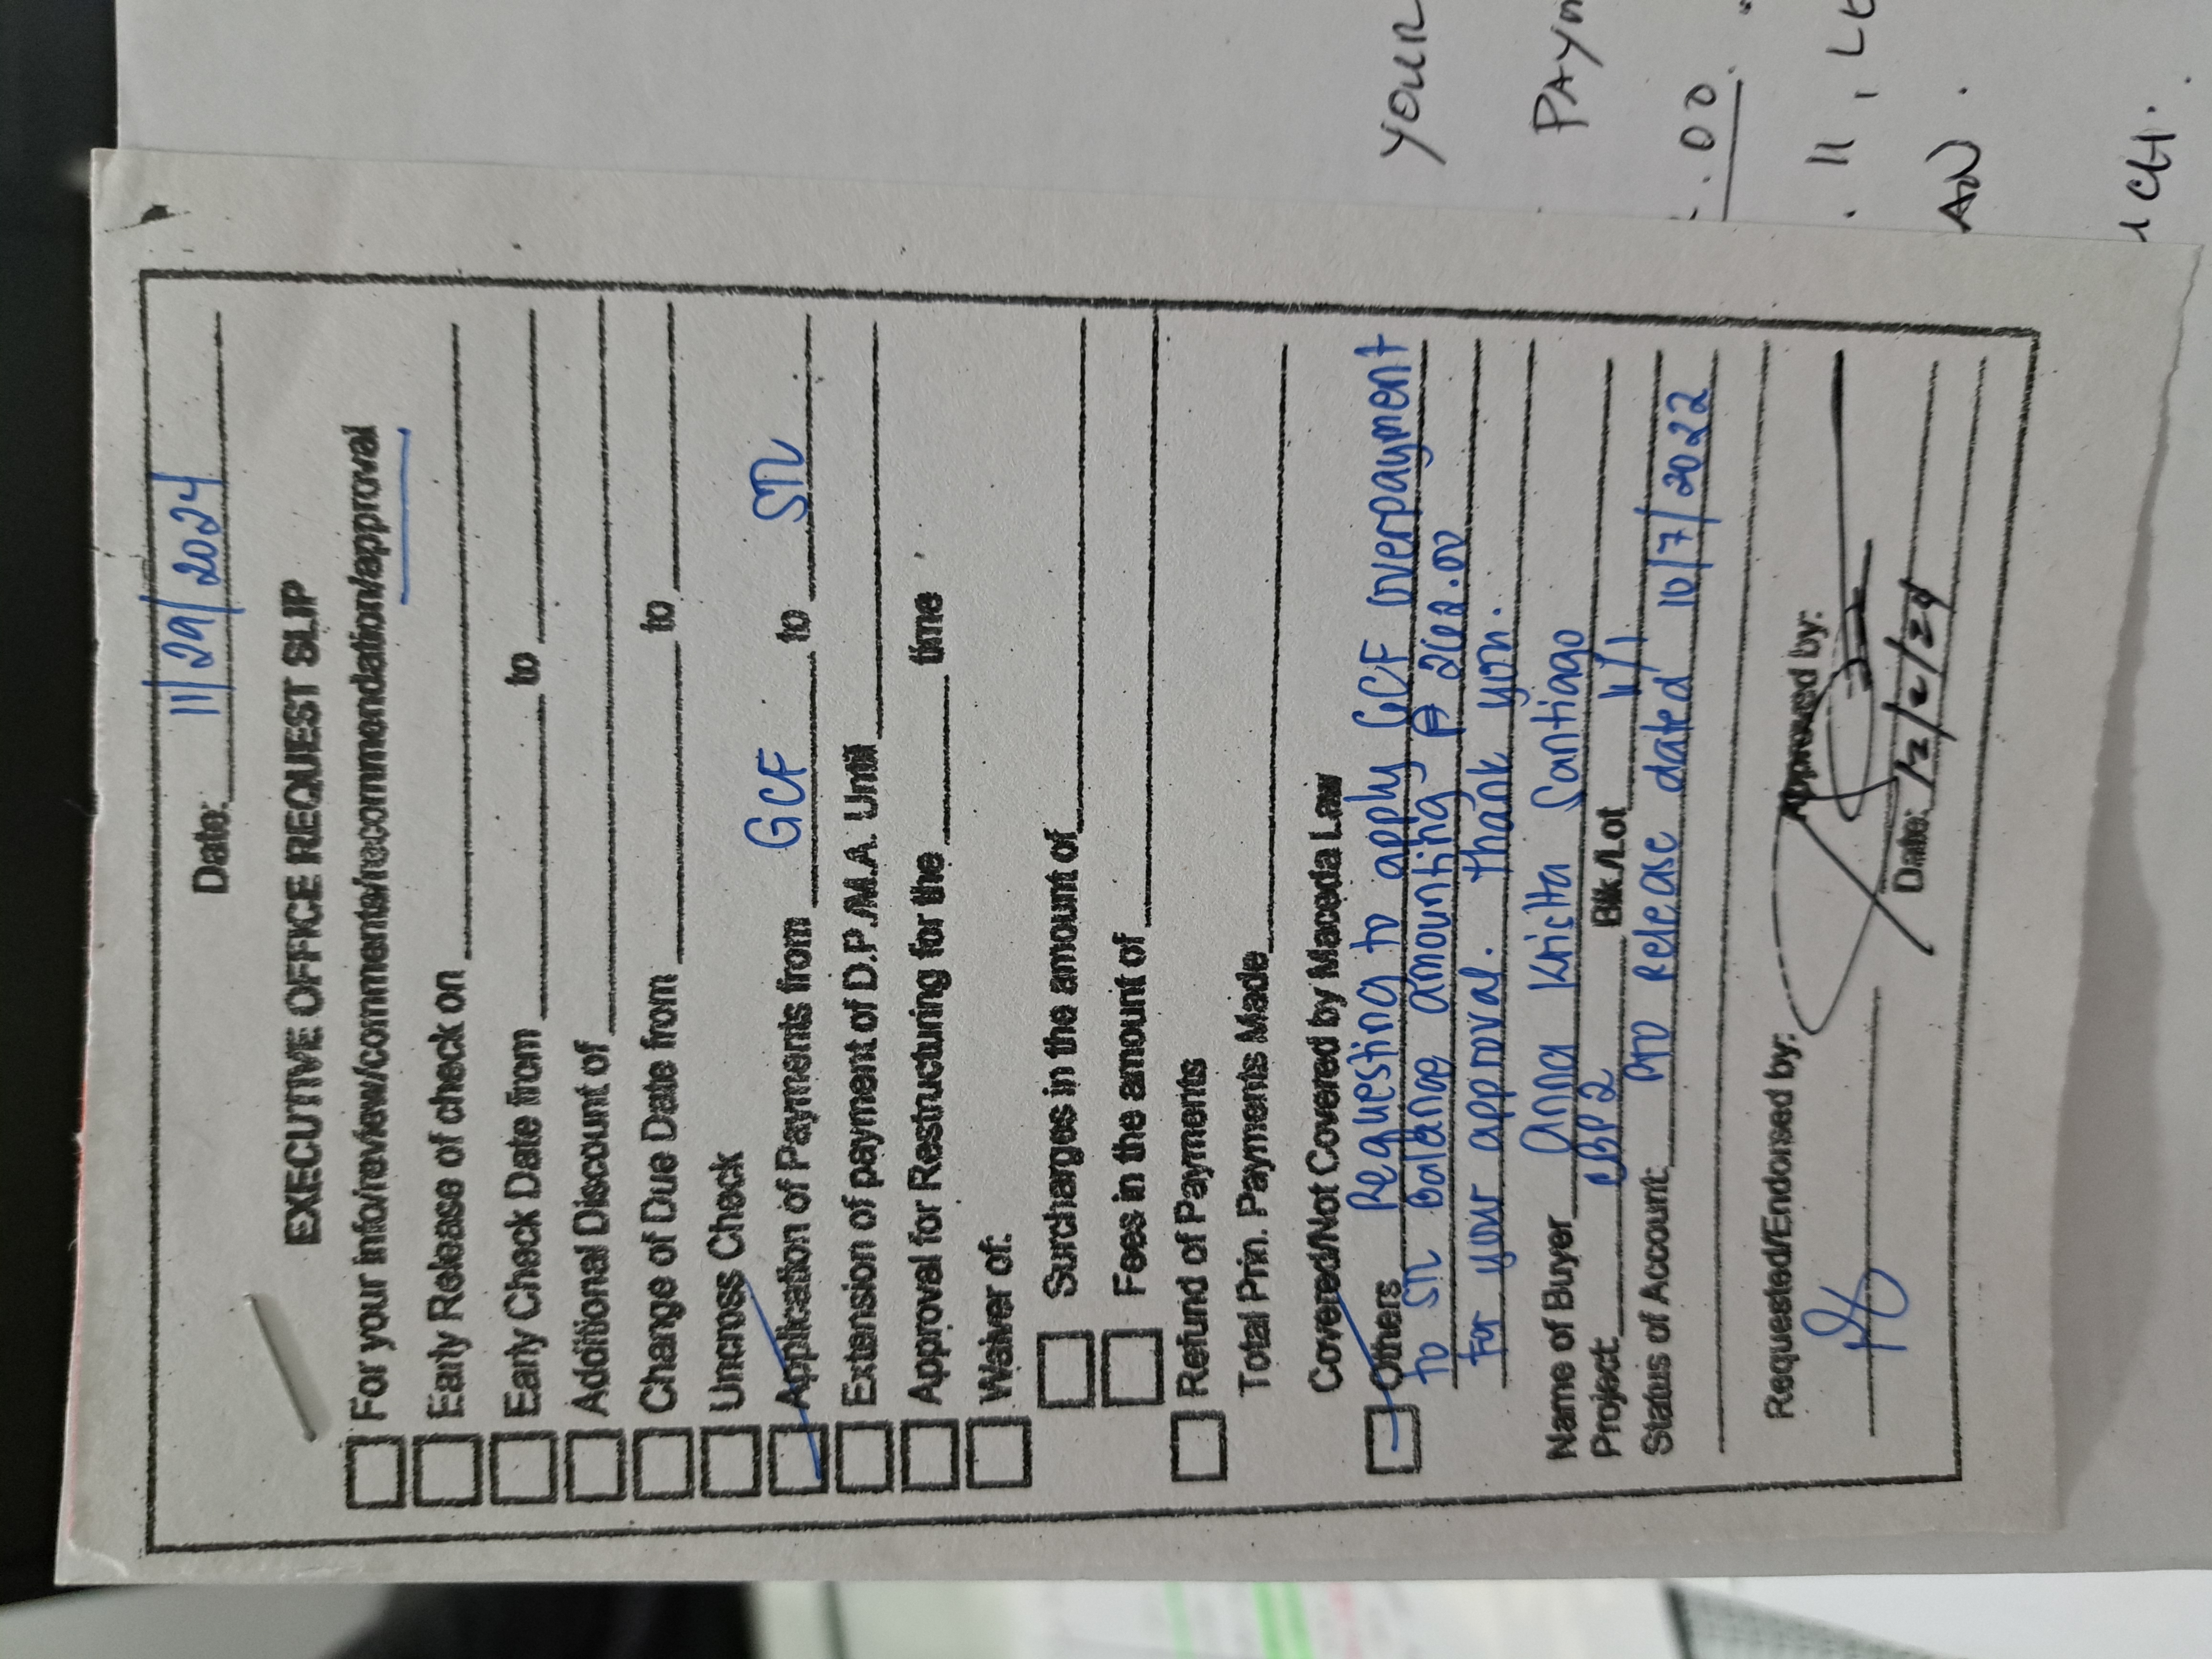 Date: 11/29/2024
EXECUTIVE OFFICE REQUEST SLIP
For your info/review/comments/recommendation/approval
Early Release of check on
Early Check Date from to
Additional Discount of
Change of Due Date from to
Uncross Check
Application of Payments from GCF to STL
Extension of payment of D.P./M.A. Until
Approval for Restructuring for the time
Waiver of:
Surcharges in the amount of
Fees in the amount of
Refund of Payments
Total Prin. Payments Made
Covered/Not Covered by Maceda Law
Others Requesting to apply GCF overpayment
to STL Balance amounting ₱
For your approval. Thank you.
Name of Buyer Anna Santiago
Project: CBP2 Blk./Lot 11/1
Status of Account: Release dated 10/7/2022
Requested/Endorsed by: Approved by:
Date: 12/2/24
YOUR
.00
. 11,